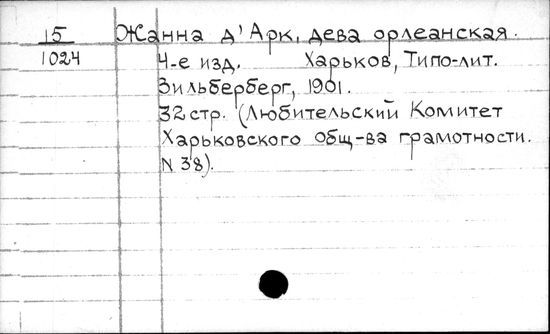 15 Жанна д'Арк, дева орлеанская.
1024 4-е изд. Харьков, Типо-лит.
Зильберберг, 1901.
32 стр. (Любительский Комитет
Харьковского общ-ва грамотности.
N 38).